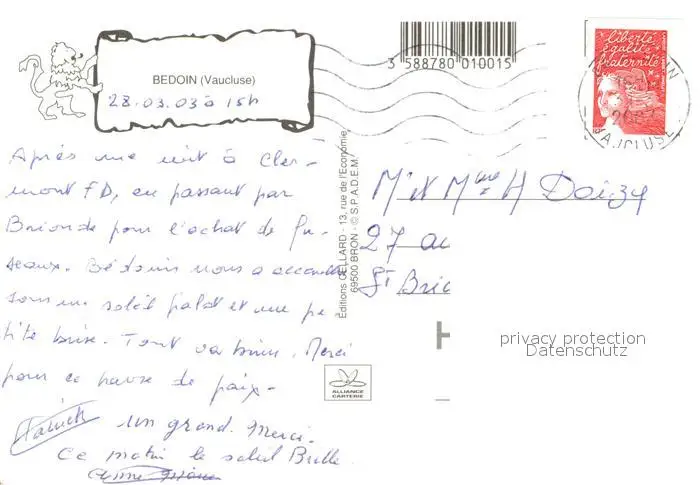 BEDOIN (Vaucluse)
28.03.03 à 15h
3 588780 010015
liberté
égalité
fraternité
VAUCLUSE
Après une nuit à Cler-
mont FD, en passant par
Brionde pour l'achat de fu-
seaux. Bédouin nous a accueilli
sous un soleil pâlot et une pe-
tite brise. Tout va bien. Merci
pour ce havre de paix.
Patrick un grand Merci.
Ce matin le soleil Brille.
Editions CELLARD - 13, rue de l'Economie
69500 BRON - © S.P.A.D.E.M.
M et Mme H Doizy
27 au
St Bric
H
privacy protection
Datenschutz
ALLIANCE
CARTERIE